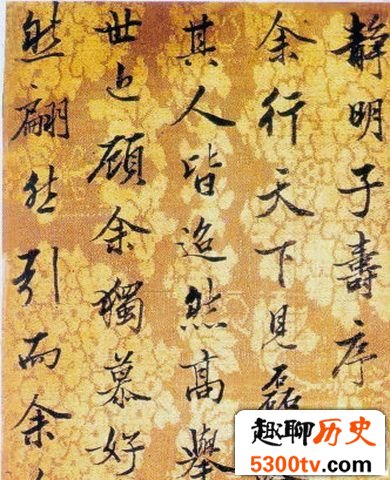 静明子壽序
余行天下見磊
其人皆迨然高舉
世上顧余獨慕好
然翩然引而余
趣聊历史
5300tv.com